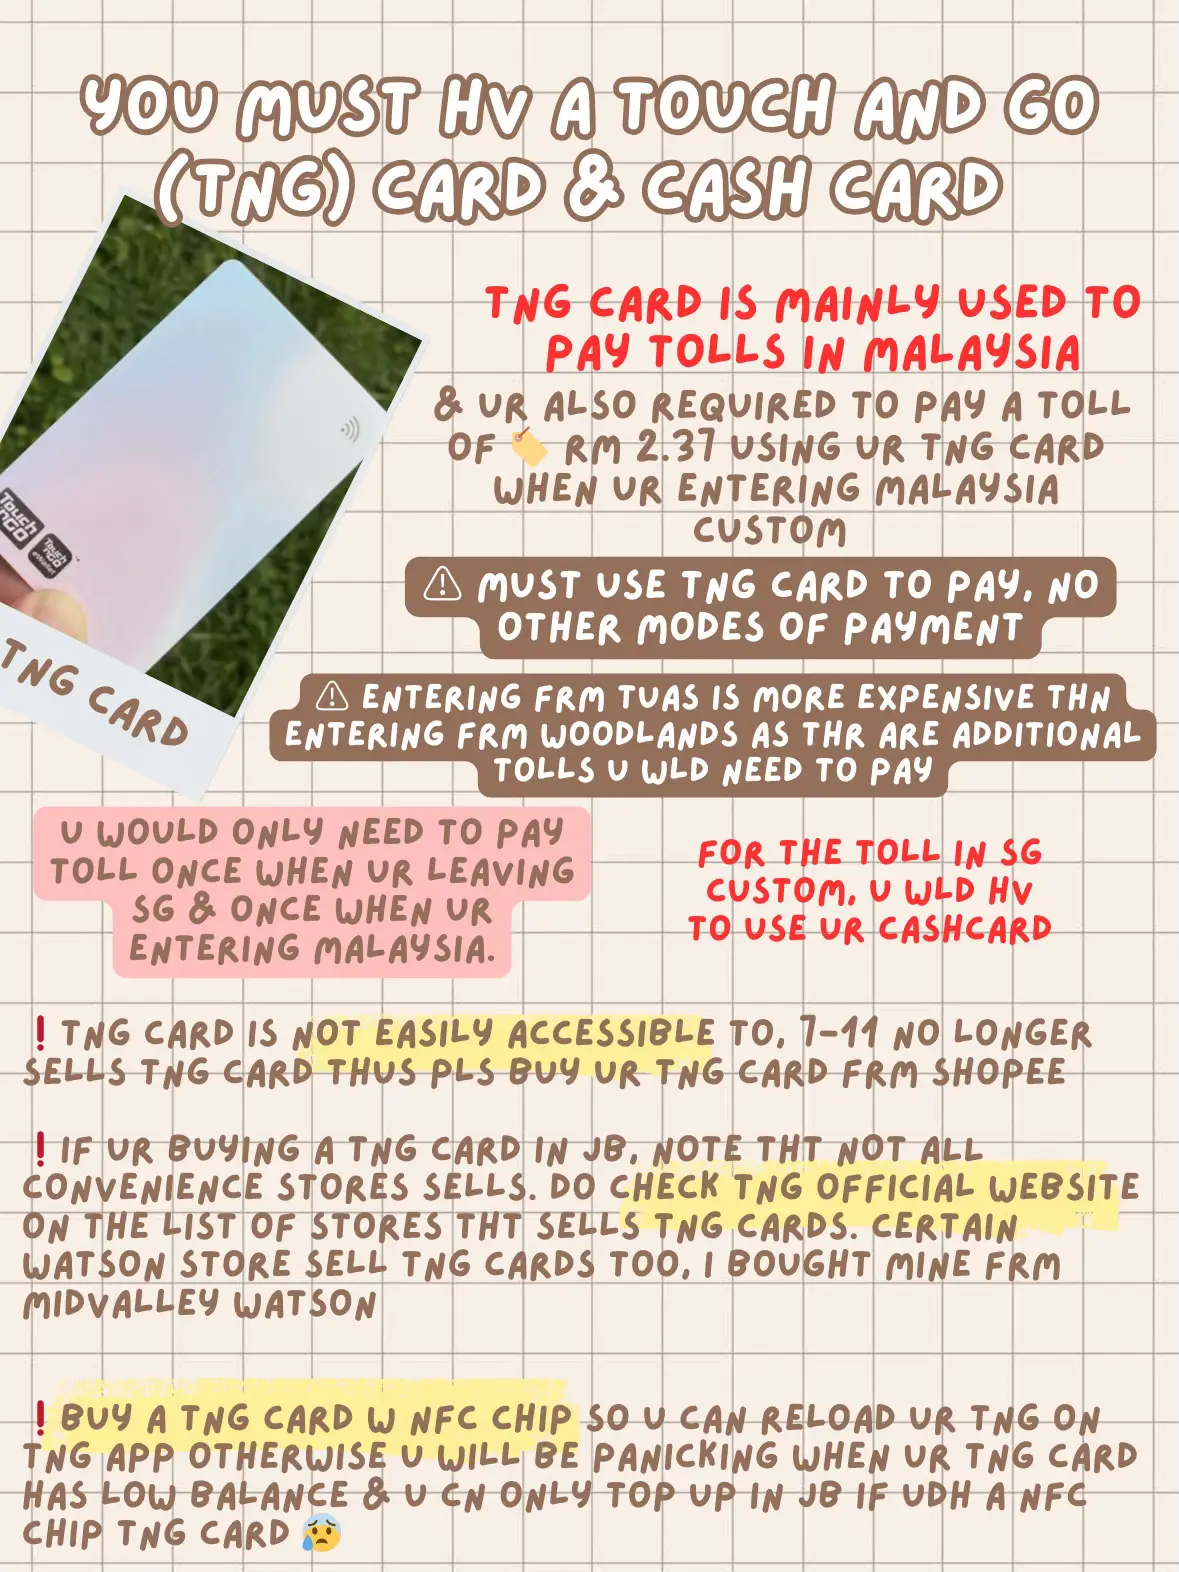 YOU MUST HV A TOUCH AND GO
(TNG) CARD & CASH CARD
TNG CARD IS MAINLY USED TO
PAY TOLLS IN MALAYSIA
& UR ALSO REQUIRED TO PAY A TOLL
OF 🏷️ RM 2.37 USING UR TNG CARD
WHEN UR ENTERING MALAYSIA
CUSTOM
⚠ MUST USE TNG CARD TO PAY, NO
OTHER MODES OF PAYMENT
Touch
'nGO
Touch
'nGO
eWallet
TNG CARD
⚠ ENTERING FRM TUAS IS MORE EXPENSIVE THN
ENTERING FRM WOODLANDS AS THR ARE ADDITIONAL
TOLLS U WLD NEED TO PAY
U WOULD ONLY NEED TO PAY
TOLL ONCE WHEN UR LEAVING
SG & ONCE WHEN UR
ENTERING MALAYSIA.
FOR THE TOLL IN SG
CUSTOM, U WLD HV
TO USE UR CASHCARD
❗TNG CARD IS NOT EASILY ACCESSIBLE TO, 7-11 NO LONGER
SELLS TNG CARD THUS PLS BUY UR TNG CARD FRM SHOPEE
❗IF UR BUYING A TNG CARD IN JB, NOTE THT NOT ALL
CONVENIENCE STORES SELLS. DO CHECK TNG OFFICIAL WEBSITE
ON THE LIST OF STORES THT SELLS TNG CARDS. CERTAIN
WATSON STORE SELL TNG CARDS TOO, I BOUGHT MINE FRM
MIDVALLEY WATSON
❗BUY A TNG CARD W NFC CHIP SO U CAN RELOAD UR TNG ON
TNG APP OTHERWISE U WILL BE PANICKING WHEN UR TNG CARD
HAS LOW BALANCE & U CN ONLY TOP UP IN JB IF UDH A NFC
CHIP TNG CARD 😰